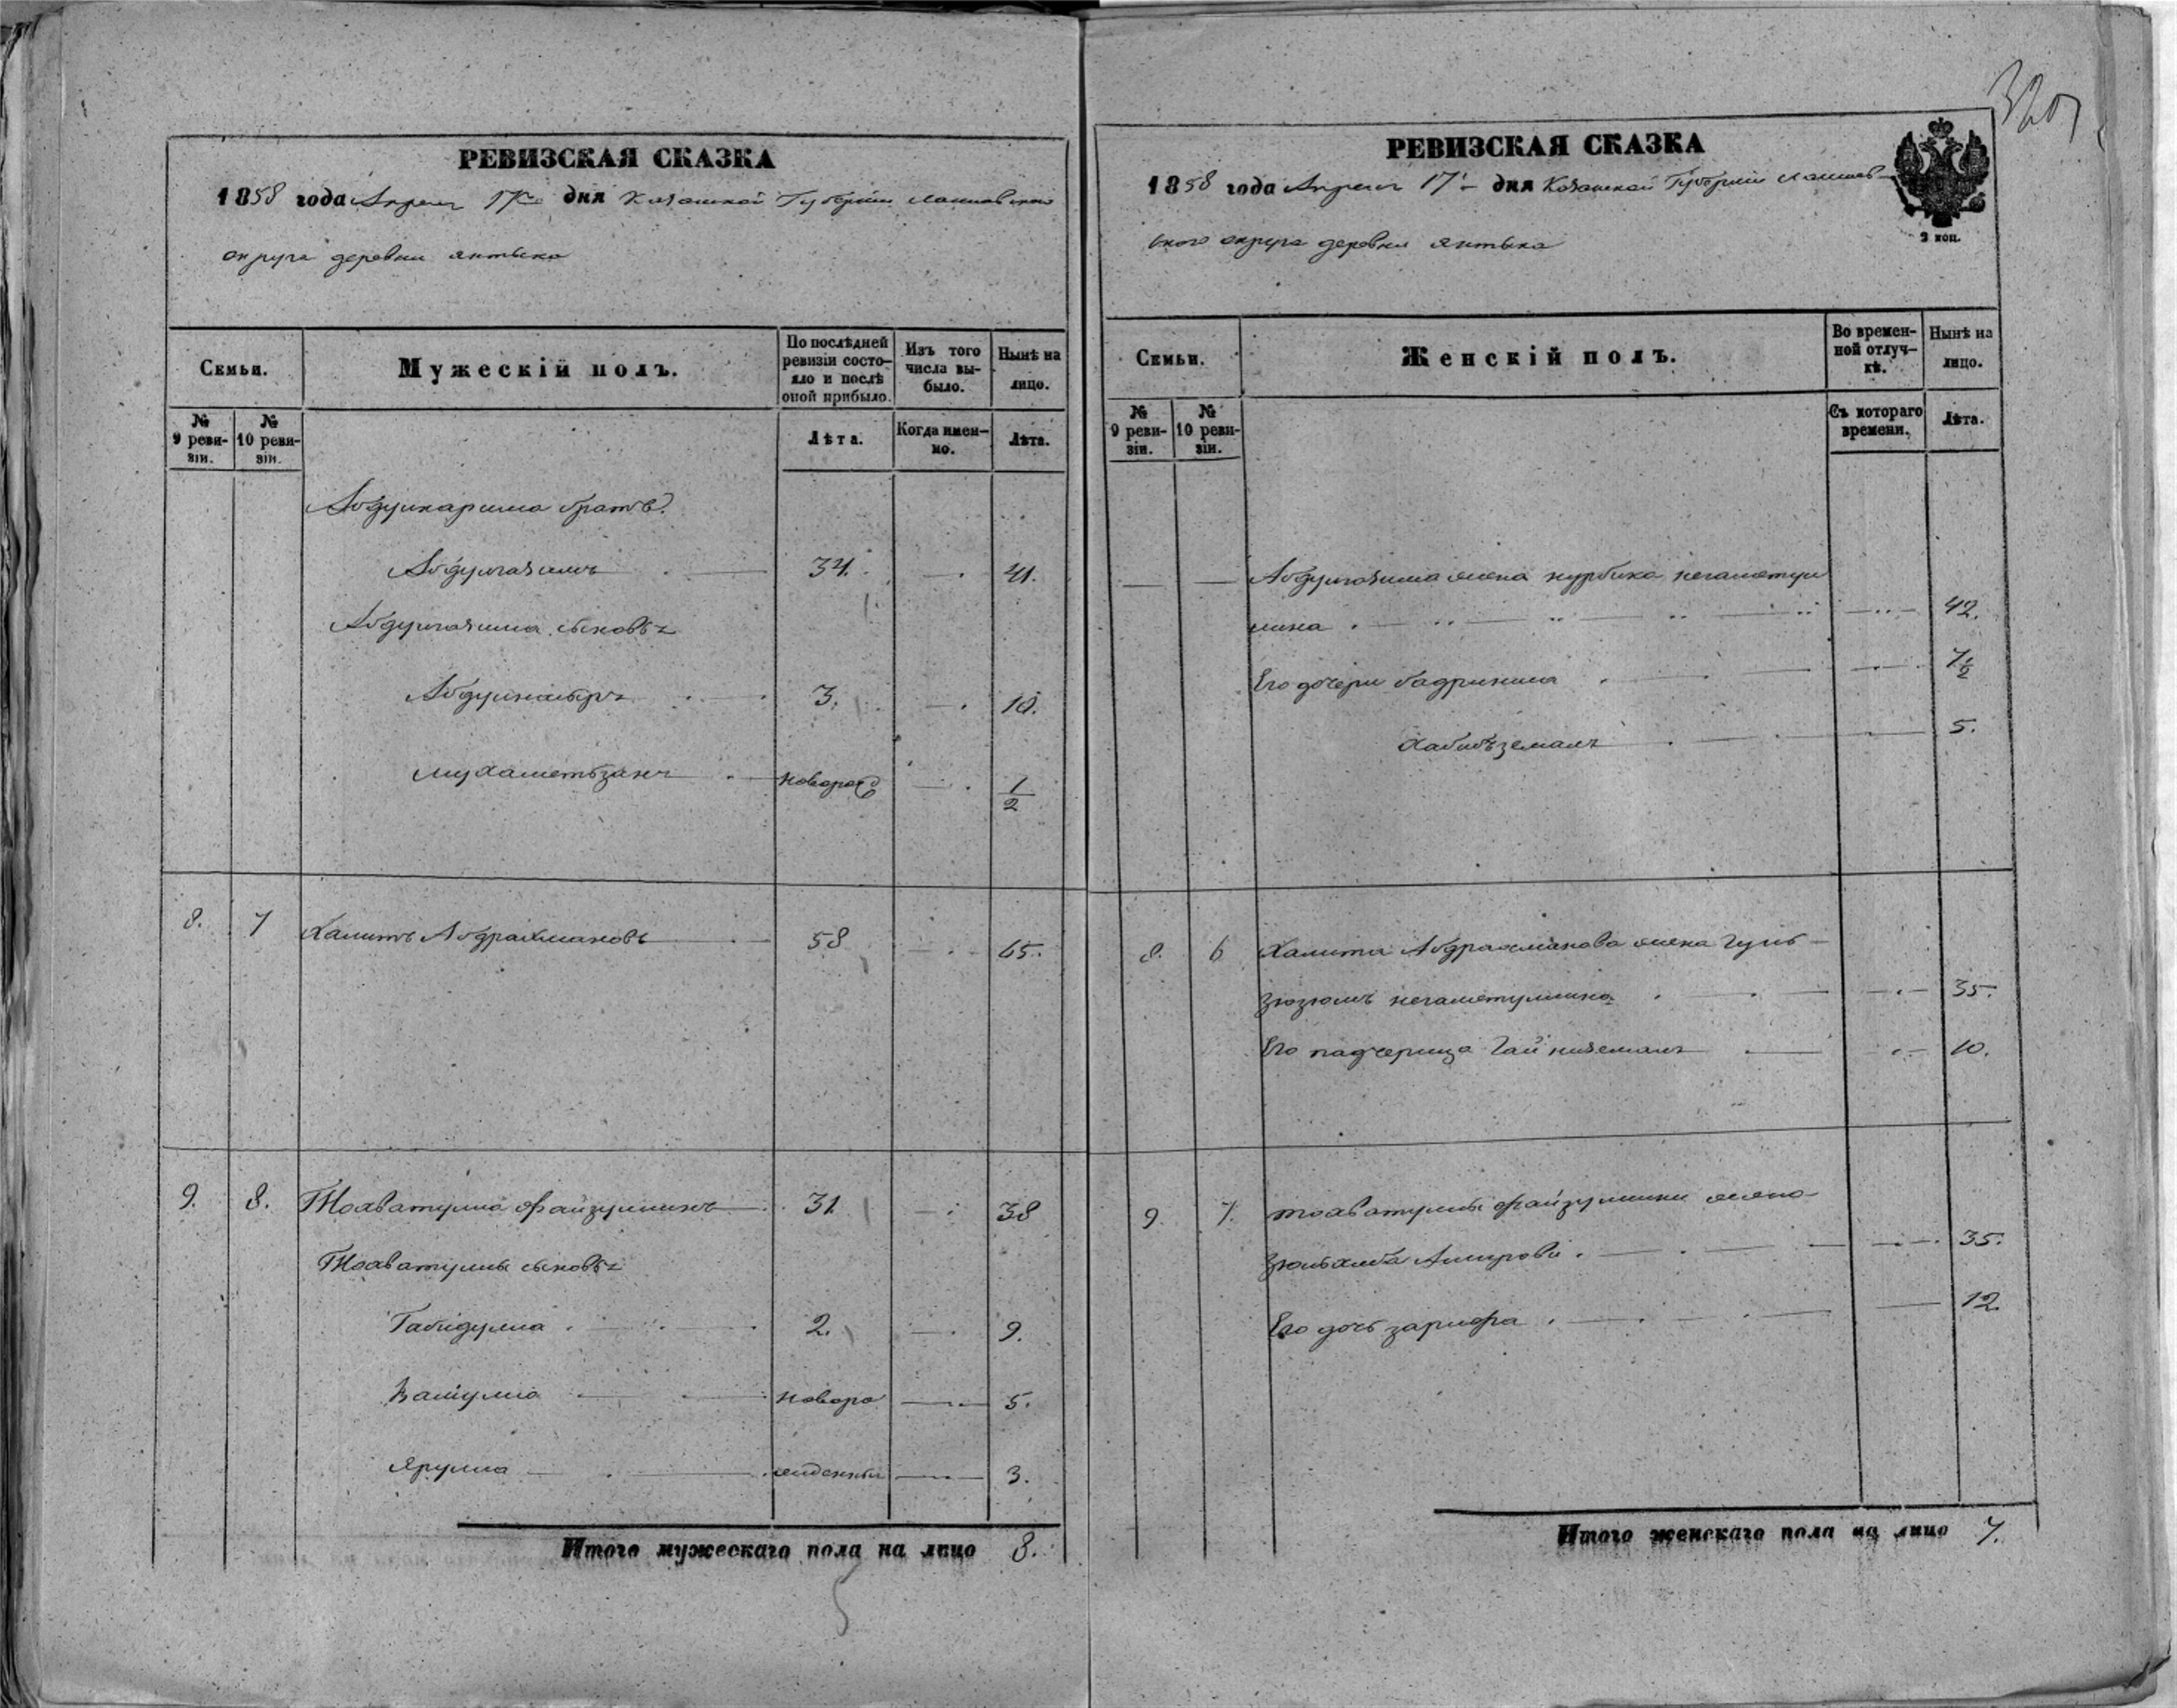 РЕВИЗСКАЯ СКАЗКА
1858 года Апреля 17го дня Казанской Губерніи Лаишевскаго
округа деревни Янтыка
Семьи.
Мужескій полъ.
По послѣдней ревизіи состояло и послѣ оной прибыло.
Изъ того числа выбыло.
Нынѣ на лицо.
№ 9 ревизіи.
№ 10 ревизіи.
Лѣта.
Когда именно.
Лѣта.
Абдулкарима братъ
Абдулгазимъ 34. — 41.
Абдулгазима сыновья
Абдулнасыръ 3. — 10.
Мухаметьзянъ новорож — 1/2
8. 7 Халитъ Абдрахмановъ 58 — 65.
9. 8. Тюхватулла Файзуллинъ 31 — 38
Тюхватуллы сыновья
Габидулла 2. — 9.
Валиулла новоро — 5.
Ярулла жденны — 3.
Итого мужескаго пола на лицо 8.
320
РЕВИЗСКАЯ СКАЗКА
1858 года Апреля 17 дня Казанской Губерніи Лаишев-
скаго округа деревни Янтыка
2 коп.
Семьи.
Женскій полъ.
Во временной отлучкѣ.
Нынѣ на лицо.
№ 9 ревизіи.
№ 10 ревизіи.
Съ котораго времени.
Лѣта.
— — Абдулгазима жена Нурбика Негаметул
лина — 42.
Его дочери Бадриниса — 7 1/2
Хабибъземалъ — 5.
8. 6 Халита Абдрахманова жена Гуль-
зюзюмъ Негаметуллина — 35.
Его падчерица Гайниземалъ — 10.
9. 7. Тюхватуллы Файзуллина жена
Амирова — 35.
Его дочь Зарифа — 12.
Итого женскаго пола на лицо 7.